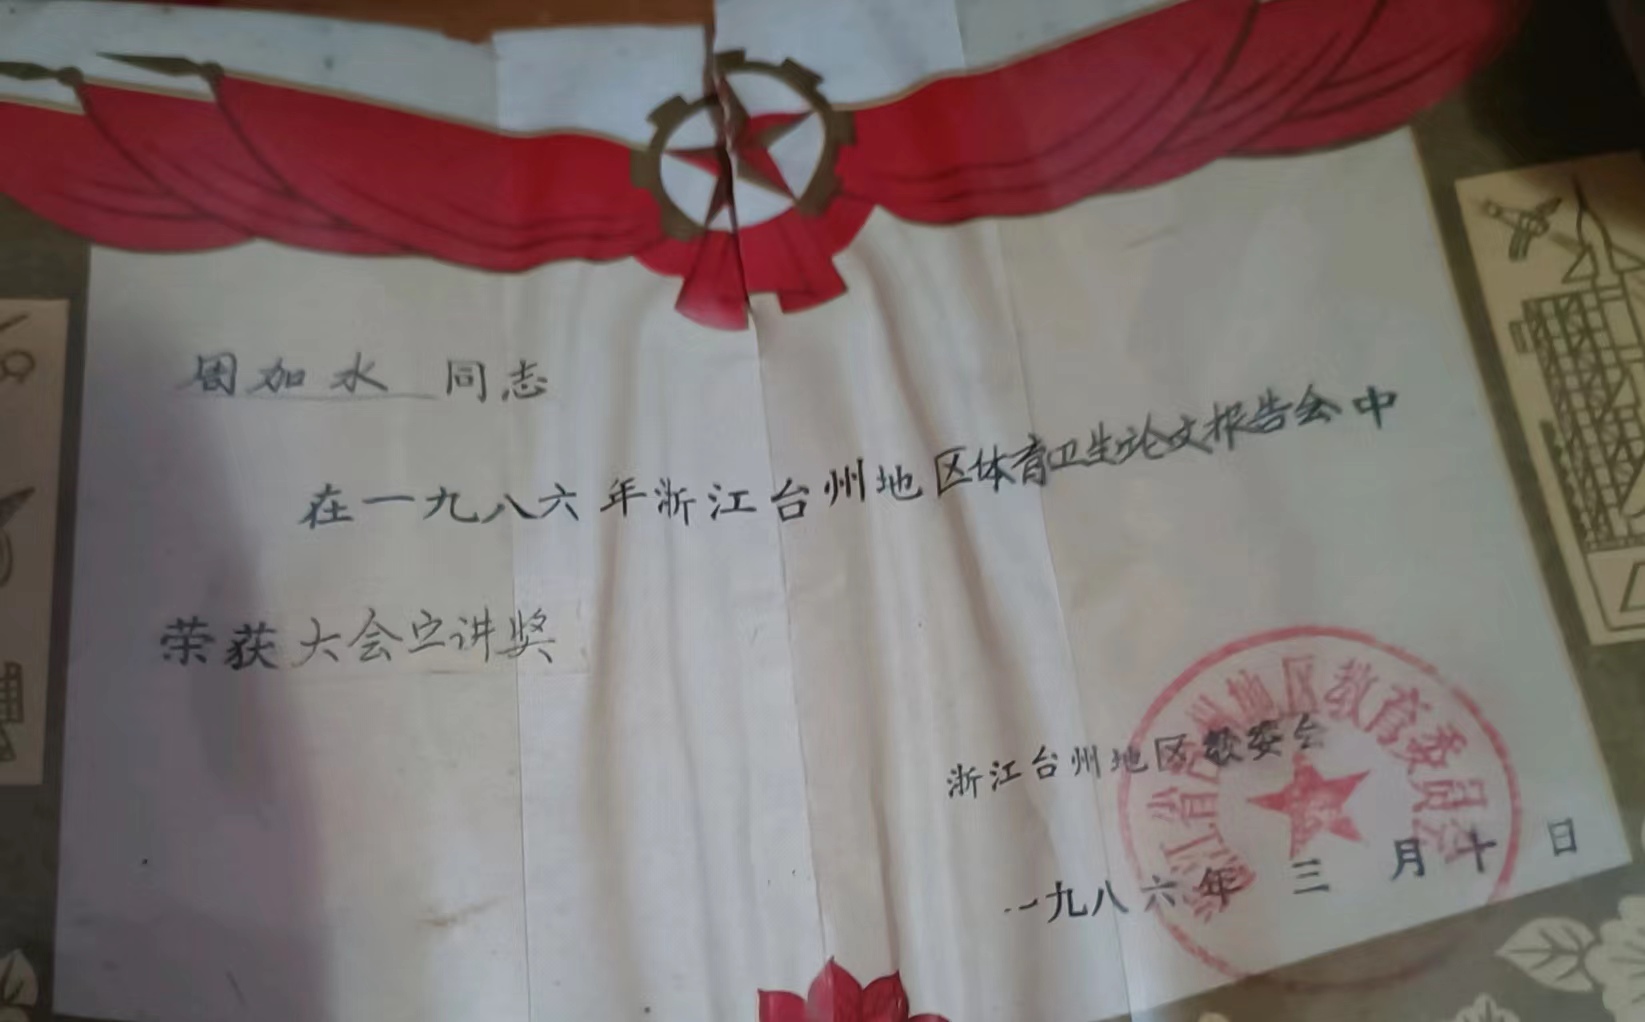 周加水 同志
在一九八六年浙江台州地区体育卫生论文报告会中
荣获大会宣讲奖
浙江台州地区教委会
一九八六年 三 月 十 日
浙江省台州地区教育委员会